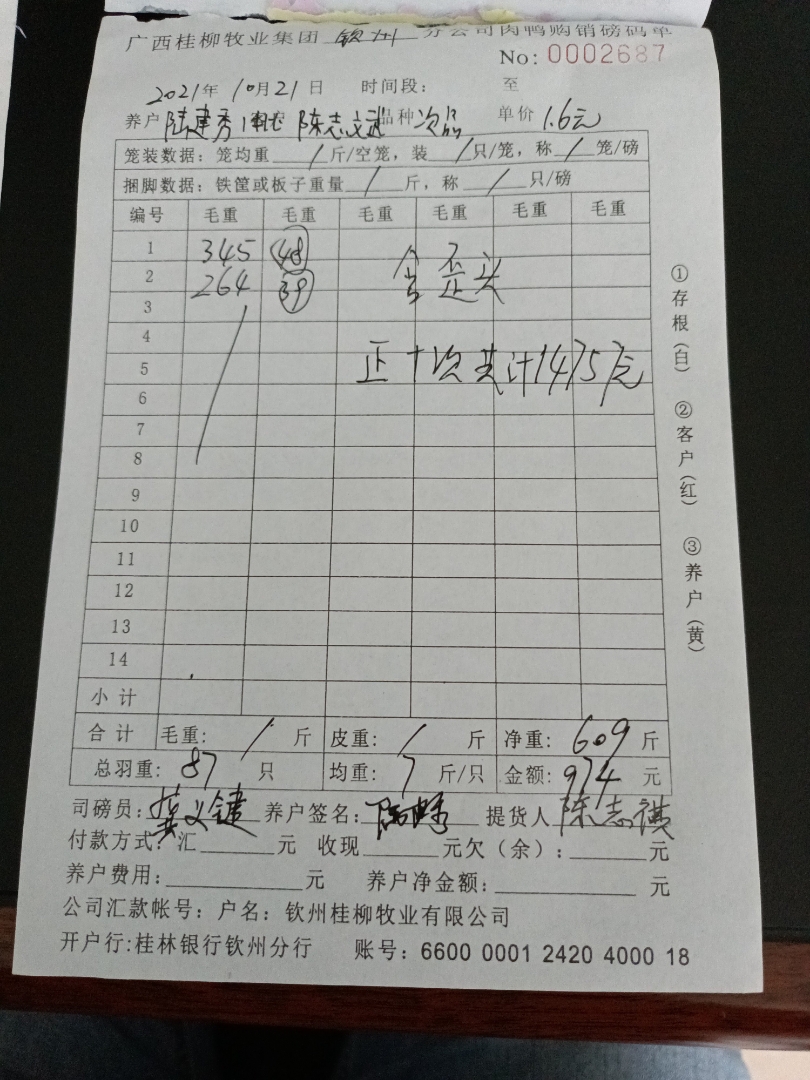 广西桂柳牧业集团 钦州 分公司肉鸭购销磅码单
No: 0002687
2021年 10月21日 时间段: 至
养户 陆建秀 陈志武 品种 次品 单价 1.6元
笼装数据: 笼均重 / 斤/空笼, 装 / 只/笼, 称 / 笼/磅
捆脚数据: 铁筐或板子重量 / 斤, 称 / 只/磅
编号 毛重 毛重 毛重 毛重 毛重 毛重
1 345 48
2 264 39 含歪头
3
4
5 正+次共计1475元
6
7
8
9
10
11
12
13
14
小计
合计 毛重: / 斤 皮重: / 斤 净重: 609 斤
总羽重: 87 只 均重: 7 斤/只 金额: 974 元
司磅员: 龚义键 养户签名: 提货人 陈志祺
付款方式: 汇 元 收现 元欠(余): 元
养户费用: 元 养户净金额: 元
公司汇款帐号: 户名: 钦州桂柳牧业有限公司
开户行:桂林银行钦州分行 账号: 6600 0001 2420 4000 18
①存根(白) ②客户(红) ③养户(黄)